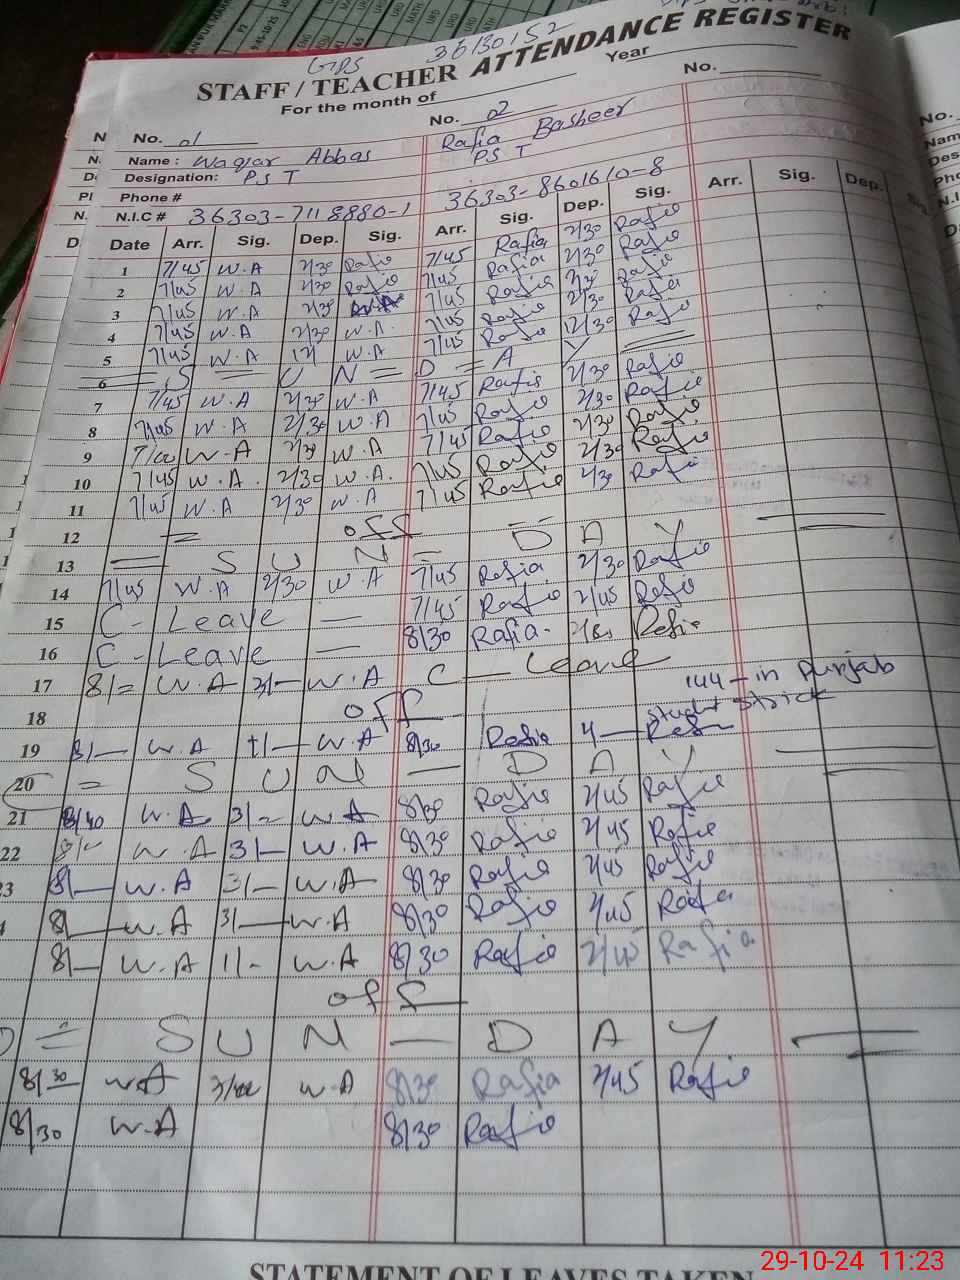 GPS 36130152
STAFF / TEACHER ATTENDANCE REGISTER
For the month of Year
No. 01 No. 02 No.
Name : Waqar Abbas Rafia Basheer
Designation: PST PST
Phone #
N.I.C # 36303-7118880-1 36303-8601610-8
Date Arr. Sig. Dep. Sig. Arr. Sig. Dep. Sig. Arr. Sig. Dep.
1 7/45 W.A 2/30 7/45 Rafia 2/30 Rafia
2 7/45 W.A 2/30 7/45 Rafia 2/30 Rafia
3 7/45 W.A 2/30 W.A 7/45 Rafia 2/30 Rafia
4 7/45 W.A 2/30 W.A 7/45 Rafia 12/30 Rafia
5 7/45 W.A W.A 7/45 Rafia Rafia
6 = S = U N = D = A Y =
7 7/45 W.A 2/30 W.A 7/45 Rafia 2/30 Rafia
8 7/45 W.A 2/30 W.A 7/45 Rafia 2/30 Rafia
9 W.A 2/30 W.A 7/45 Rafia 2/30 Rafia
10 7/45 W.A 2/30 W.A. 7/45 Rafia 2/30 Rafia
11 7/45 W.A 2/30 W.A 7/45 Rafia Rafia
12 = off =
13 = S U N = D A Y =
14 7/45 W.A 2/30 W.A 7/45 Rafia 2/30 Rafia
15 C- Leave — 7/45 Rafia 2/45 Rafia
16 C- Leave — 8/30 Rafia. Rafia
17 8/= W.A 3/— W.A C — Leave
18 off 144 — in Punjab
student strick
19 8/— W.A 1/— W.A 8/30 Rafia 4—
20 = S U N — D A Y =
21 8/30 W.A 3/= W.A 8/30 Rafia 2/45 Rafia
22 8/- W.A 3/— W.A 8/30 Rafia 2/45 Rafia
23 8/— W.A 3/- W.A 8/30 Rafia 2/45 Rafia
4 8/— W.A 3/— W.A 8/30 Rafia 2/45 Rafia
8/— W.A 1/- W.A 8/30 Rafia 2/45 Rafia
off
= S U N — D A Y =
8/30 W.A W.A 8/30 Rafia 2/45 Rafia
8/30 W.A 8/30 Rafia
STATEMENT OF LEAVES TAKEN
29-10-24 11:23